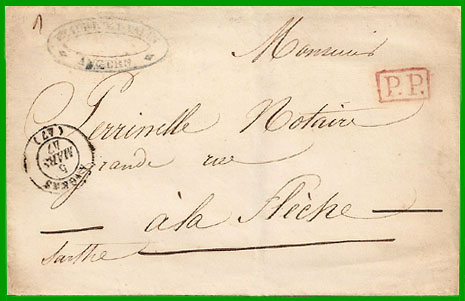 1
ANGERS
Monsieur
P.P.
Perrinelle Notaire
Grande rue
ANGERS
5
MARS
47
(47)
à la Flèche
Sarthe